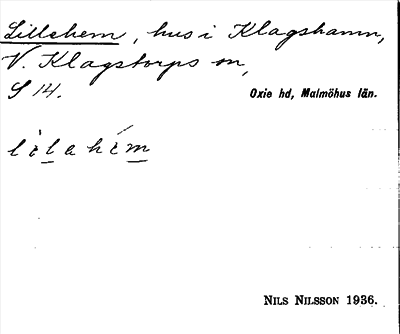 Lillehem, hus i Klagshamn,
V. Klagstorps sn,
S 14.
Oxie hd, Malmöhus län.
lìlahém
NILS NILSSON 1936.